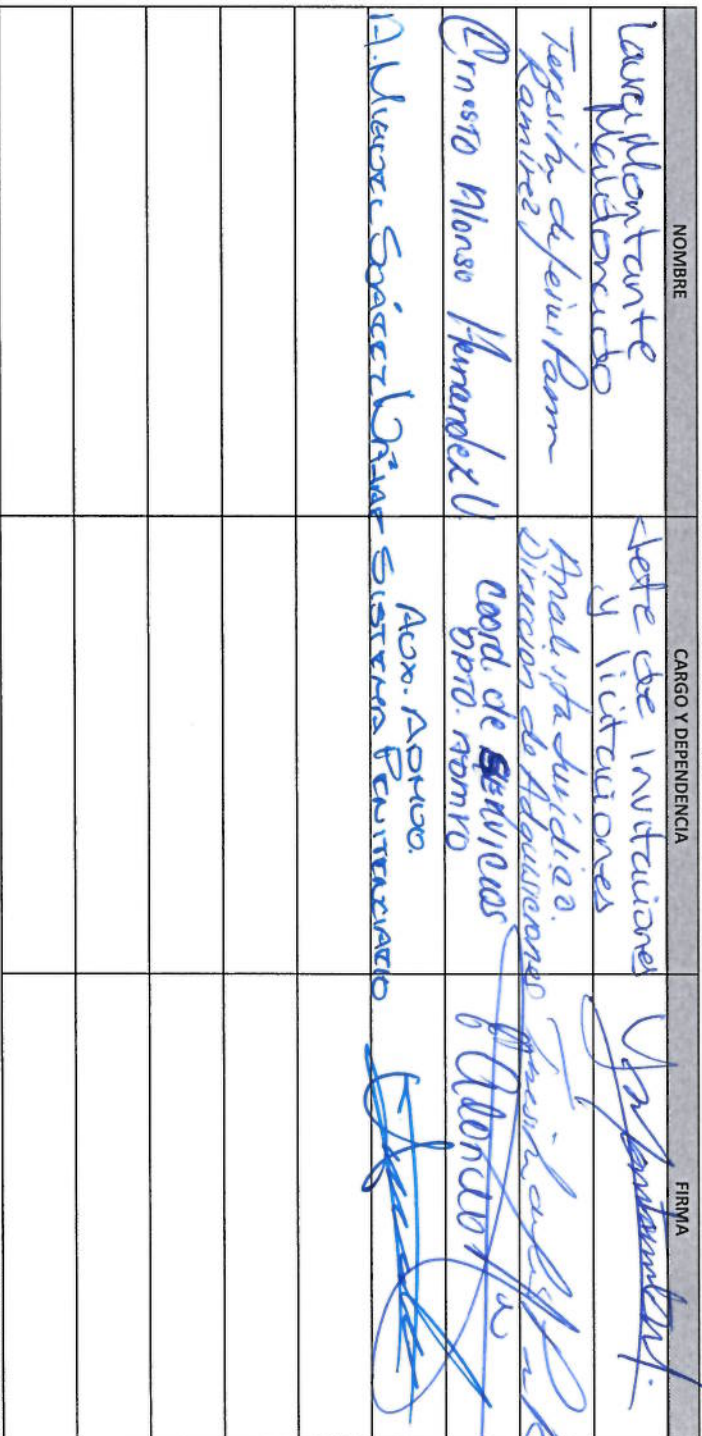 NOMBRE CARGO Y DEPENDENCIA FIRMA
Laura Montante
Maldonado
Jefe de Invitaciones
y licitaciones
Teresita de Jesus Parra
Ramirez
Analista Jurídica.
Dirección de Adquisiciones
Ernesto Alonso Hernandez U
Coord. de SERVICIOS
DPTO. ADMVO
A. Miguel
AUX. ADMVO.
SISTEMA PENITENCIARIO